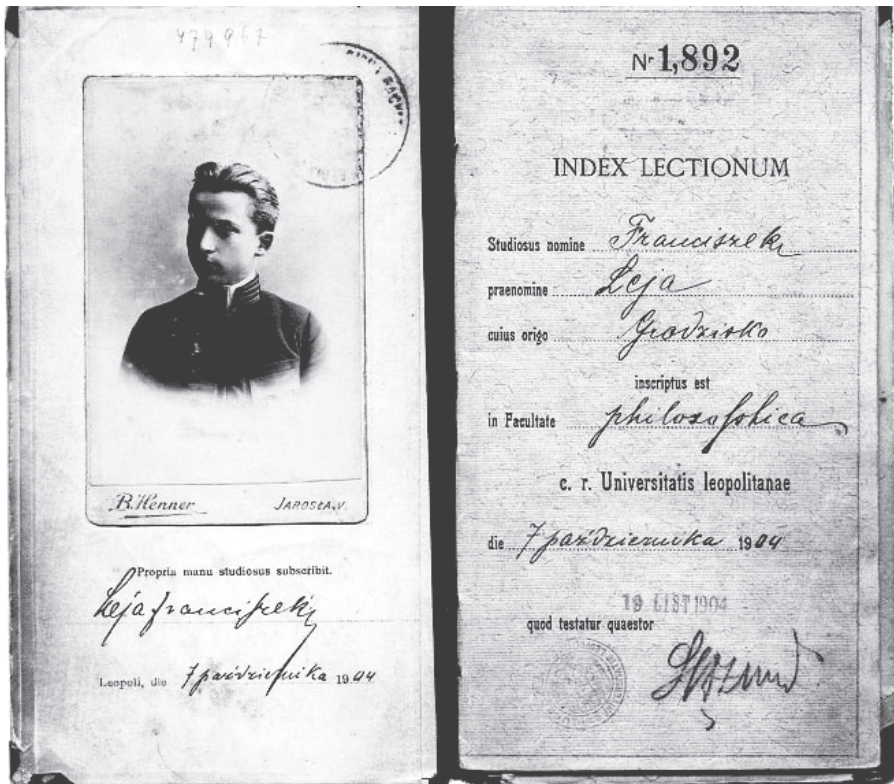 479967
B. Henner JAROSŁAV.
Propria manu studiosus subscribit.
Leja Franciszek
Leopoli, die 7 października 1904
Nr 1,892
INDEX LECTIONUM
Studiosus nomine Franciszek
praenomine Leja
cuius origo Grodzisko
inscriptus est
in Facultate philosophica
c. r. Universitatis leopolitanae
die 7 października 1904
19 LIST 1904
quod testatur quaestor